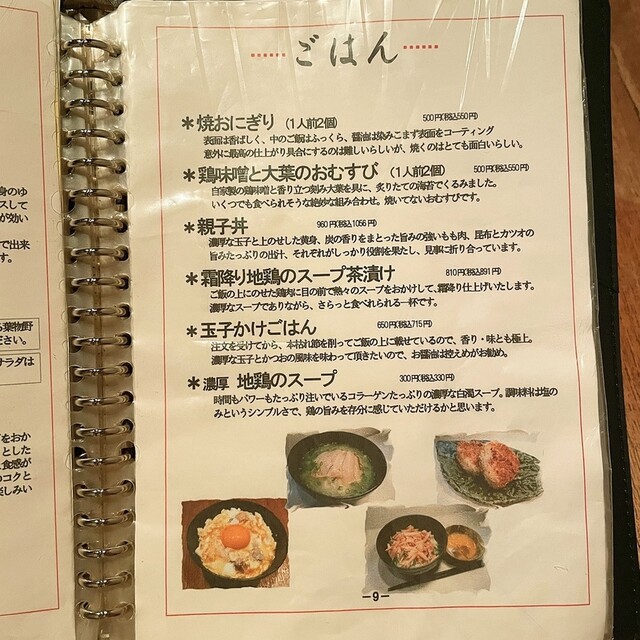 身のゆ
スして
が効い
で出来
す。
る葉物野
ださい。
サラダは
をおか
とした
食感が
のコクと
楽しみい
ごはん
＊焼おにぎり（1人前2個） 500円(税込550円)
表面は香ばしく、中のご飯はふっくら、醤油は染みこまず表面をコーティング
意外に最高の仕上がり具合にするのは難しいらしいが、焼くのはとても面白いらしい。
＊鶏味噌と大葉のおむすび（1人前2個） 500円(税込550円)
自家製の鶏味噌と香り立つ刻み大葉を具に、炙りたての海苔でくるみました。
いくつでも食べられそうな絶妙な組み合わせ。焼いてないおむすびです。
＊親子丼 960円(税込1056円)
濃厚な玉子と上のせした黄身、炭の香りをまとった旨みの強いもも肉、昆布とカツオの
旨みたっぷりの出汁、それぞれがしっかり役割を果たし、見事に折り合っています。
＊霜降り地鶏のスープ茶漬け 810円(税込891円)
ご飯の上にのせた鶏肉に目の前で熱々のスープをおかけして、霜降り仕上げいたします。
濃厚なスープでありながら、さらっと食べれられる一杯です。
＊玉子かけごはん 650円(税込715円)
注文を受けてから、本枯れ節を削ってご飯の上に載せているので、香り・味とも極上。
濃厚な玉子とかつおの風味を味わって頂きたいので、お醤油は控えめがお勧め。
＊濃厚 地鶏のスープ 300円(税込330円)
時間もパワーもたっぷり注いでいるコラーゲンたっぷりの濃厚な白濁スープ。調味料は塩の
みというシンプルさで、鶏の旨みを存分に感じていただけるかと思います。
－9－